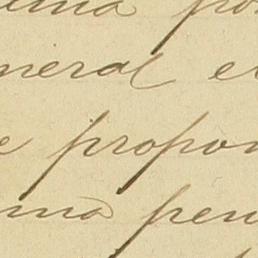 ma po
neral e
e propon
ma pen